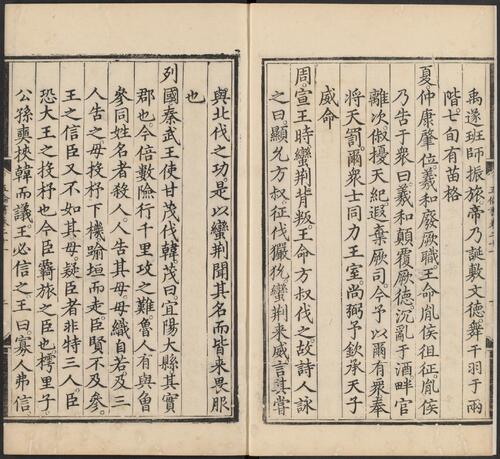 禹遂班師振旅帝乃誕敷文德舞干羽于兩
階七旬有苗格
夏仲康肇位羲和廢厥職王命胤侯徂征胤侯
乃告于衆曰羲和顛覆厥德沉亂于酒畔官
離次俶擾天紀遐棄厥司今予以爾有衆奉
將天罰爾衆士同力王室尚弼予欽承天子
威命
周宣王時蠻荆背叛王命方叔伐之故詩人詠
之曰顯允方叔征伐玁狁蠻荆来威言其嘗
與北伐之功是以蠻荆聞其名而皆来畏服
也
列國秦武王使甘茂伐韓茂曰宜陽大縣其實
郡也今倍數險行千里攻之難魯人有與魯
參同姓名者殺人人告其母母織自若及三
人告之母投杼下機踰垣而走臣賢不及參
王之信臣又不如其母疑臣者非特三人臣
恐大王之投杼也今臣羇旅之臣也樗里子
公孫奭挾韓而議王必信之王曰寡人弗信